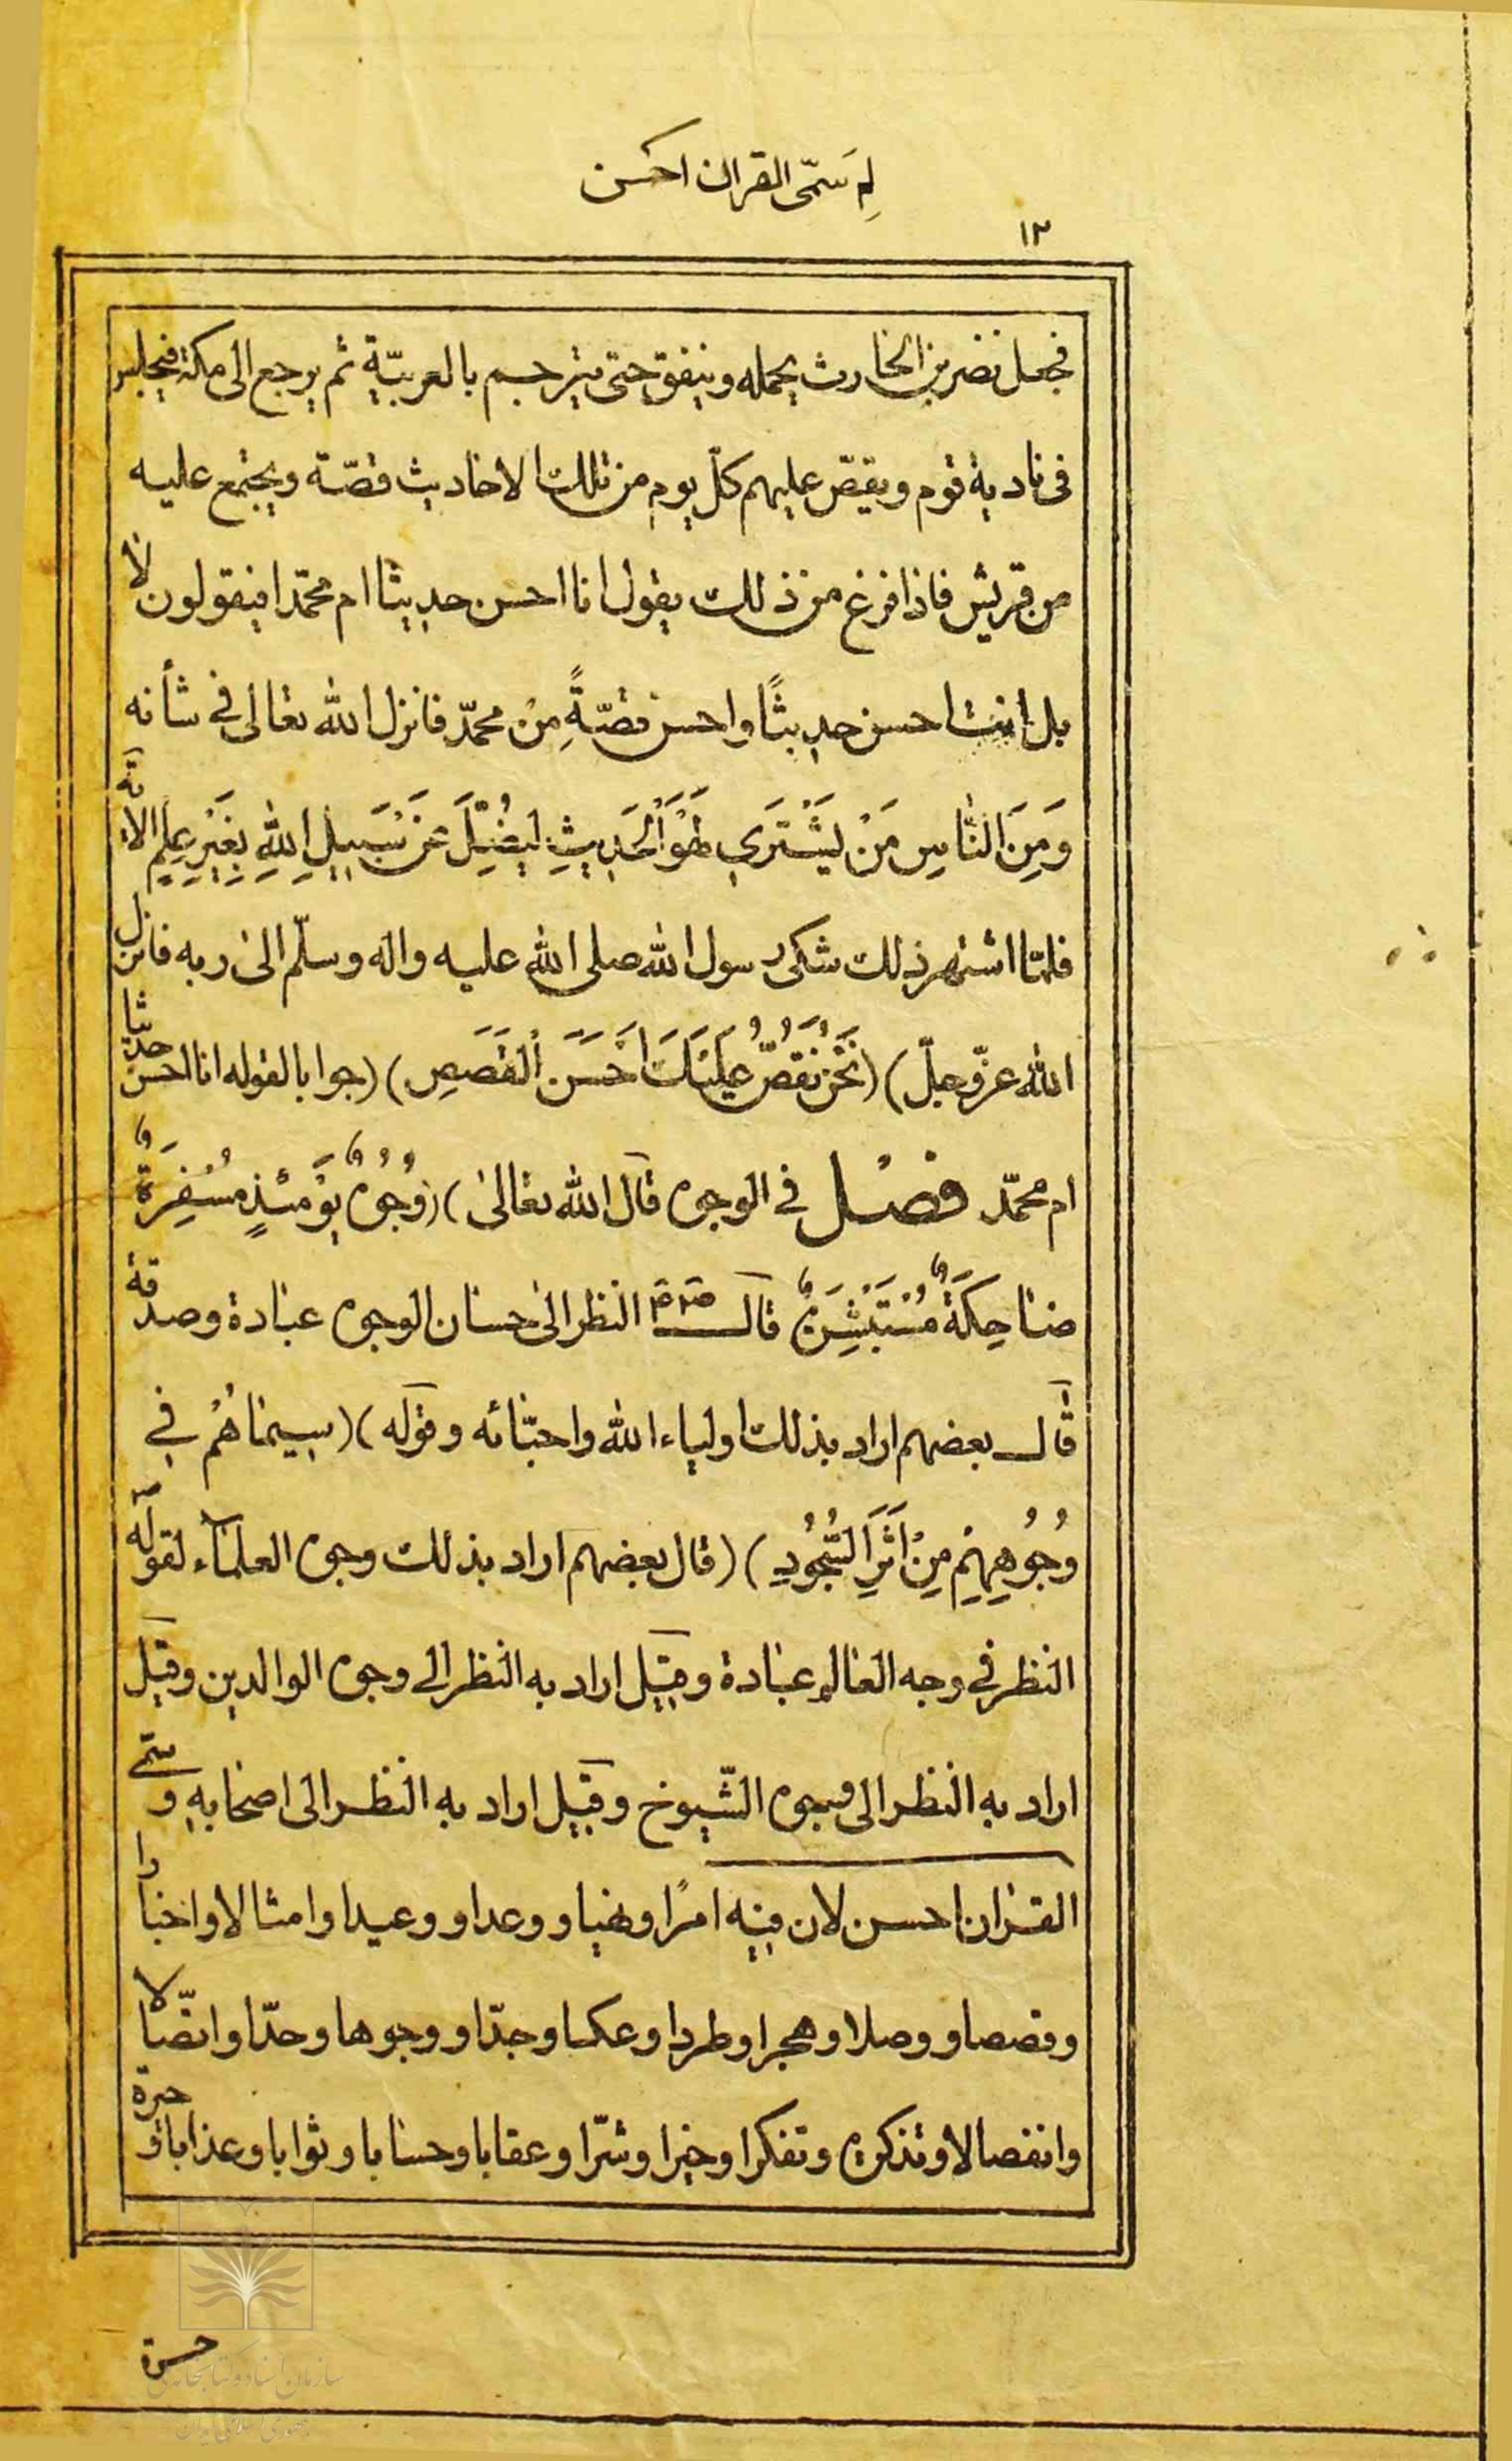 لِمَ سمّى القران احسن
١٢
فجعل نضر بن الحارث يحمله وينفق حتى يترجم بالعربيّة ثم يرجع الى مكة فيجلس
فى نادية قوم ويقصّ عليهم كلّ يوم من تلك الاحاديث قصّة ويجتمع عليه
من قريش فاذا فرغ من ذلك يقول انا احسن حديثا ام محمّدا فيقولون لا
بل انت احسن حديثًا واحسن قصّةً مِنْ محمدّ فانزل الله تعالى فى شأنه
وَمِنَ النَّاسِ مَنْ يَشْتَرَي لَهْوَ الْحَدِيثِ لِيُضِلَّ عَنْ سَبِيلِ اللهِ بِغَيْرِ عِلمٍ الاية
فلمّا اشتهر ذلك شكى رسول الله صلى الله عليه واله وسلّم الى ربه فانزل
الله عزّ وجلّ) (نَحْنُ نَقُصُّ عَلَيْكَ اَحْسَنَ الْقَصَصِ) (جوابا لقوله انا احسن حديثا
ام محمّد فصل في الوجوه قال الله تعالى) (وُجُوهٌ يَوْمَئِذٍ مُسْفِرَةٌ
ضاحِكَةٌ مُسْتَبْشِرَةٌ قال النظر الى حسان الوجوه عبادة وصدقة
قال بعضهم اراد بذلك اولياء الله واحبّائه وقوله) (سيماهُمْ في
وُجُوهِهِمْ مِنْ اَثَرِ السُّجُودِ) (قال بعضهم اراد بذلك وجوه العلماء لقوله
النظر في وجه العالم عبادة وقيل اراد به النظر الى وجوه الوالدين وقيل
اراد به النظر الى وجوه الشّيوخ وقيل اراد به النظر الى اصحابه وسمّى
القران احسن لان فيه امرًا ونهيا ووعدا ووعيدا وامثالا واخبارا
وقصصا ووصلا وهجرا وطردا وعكسا وجدّا ووجوها وحدّا واتصّالا
وانفصالا وتذكره وتفكرا وخيرا وشرّا وعقابا وحسابا وثوابا وعذابا وحيرة
حسرة
سازمان اسناد و کتابخانه ملی
جمهوری اسلامی ایران